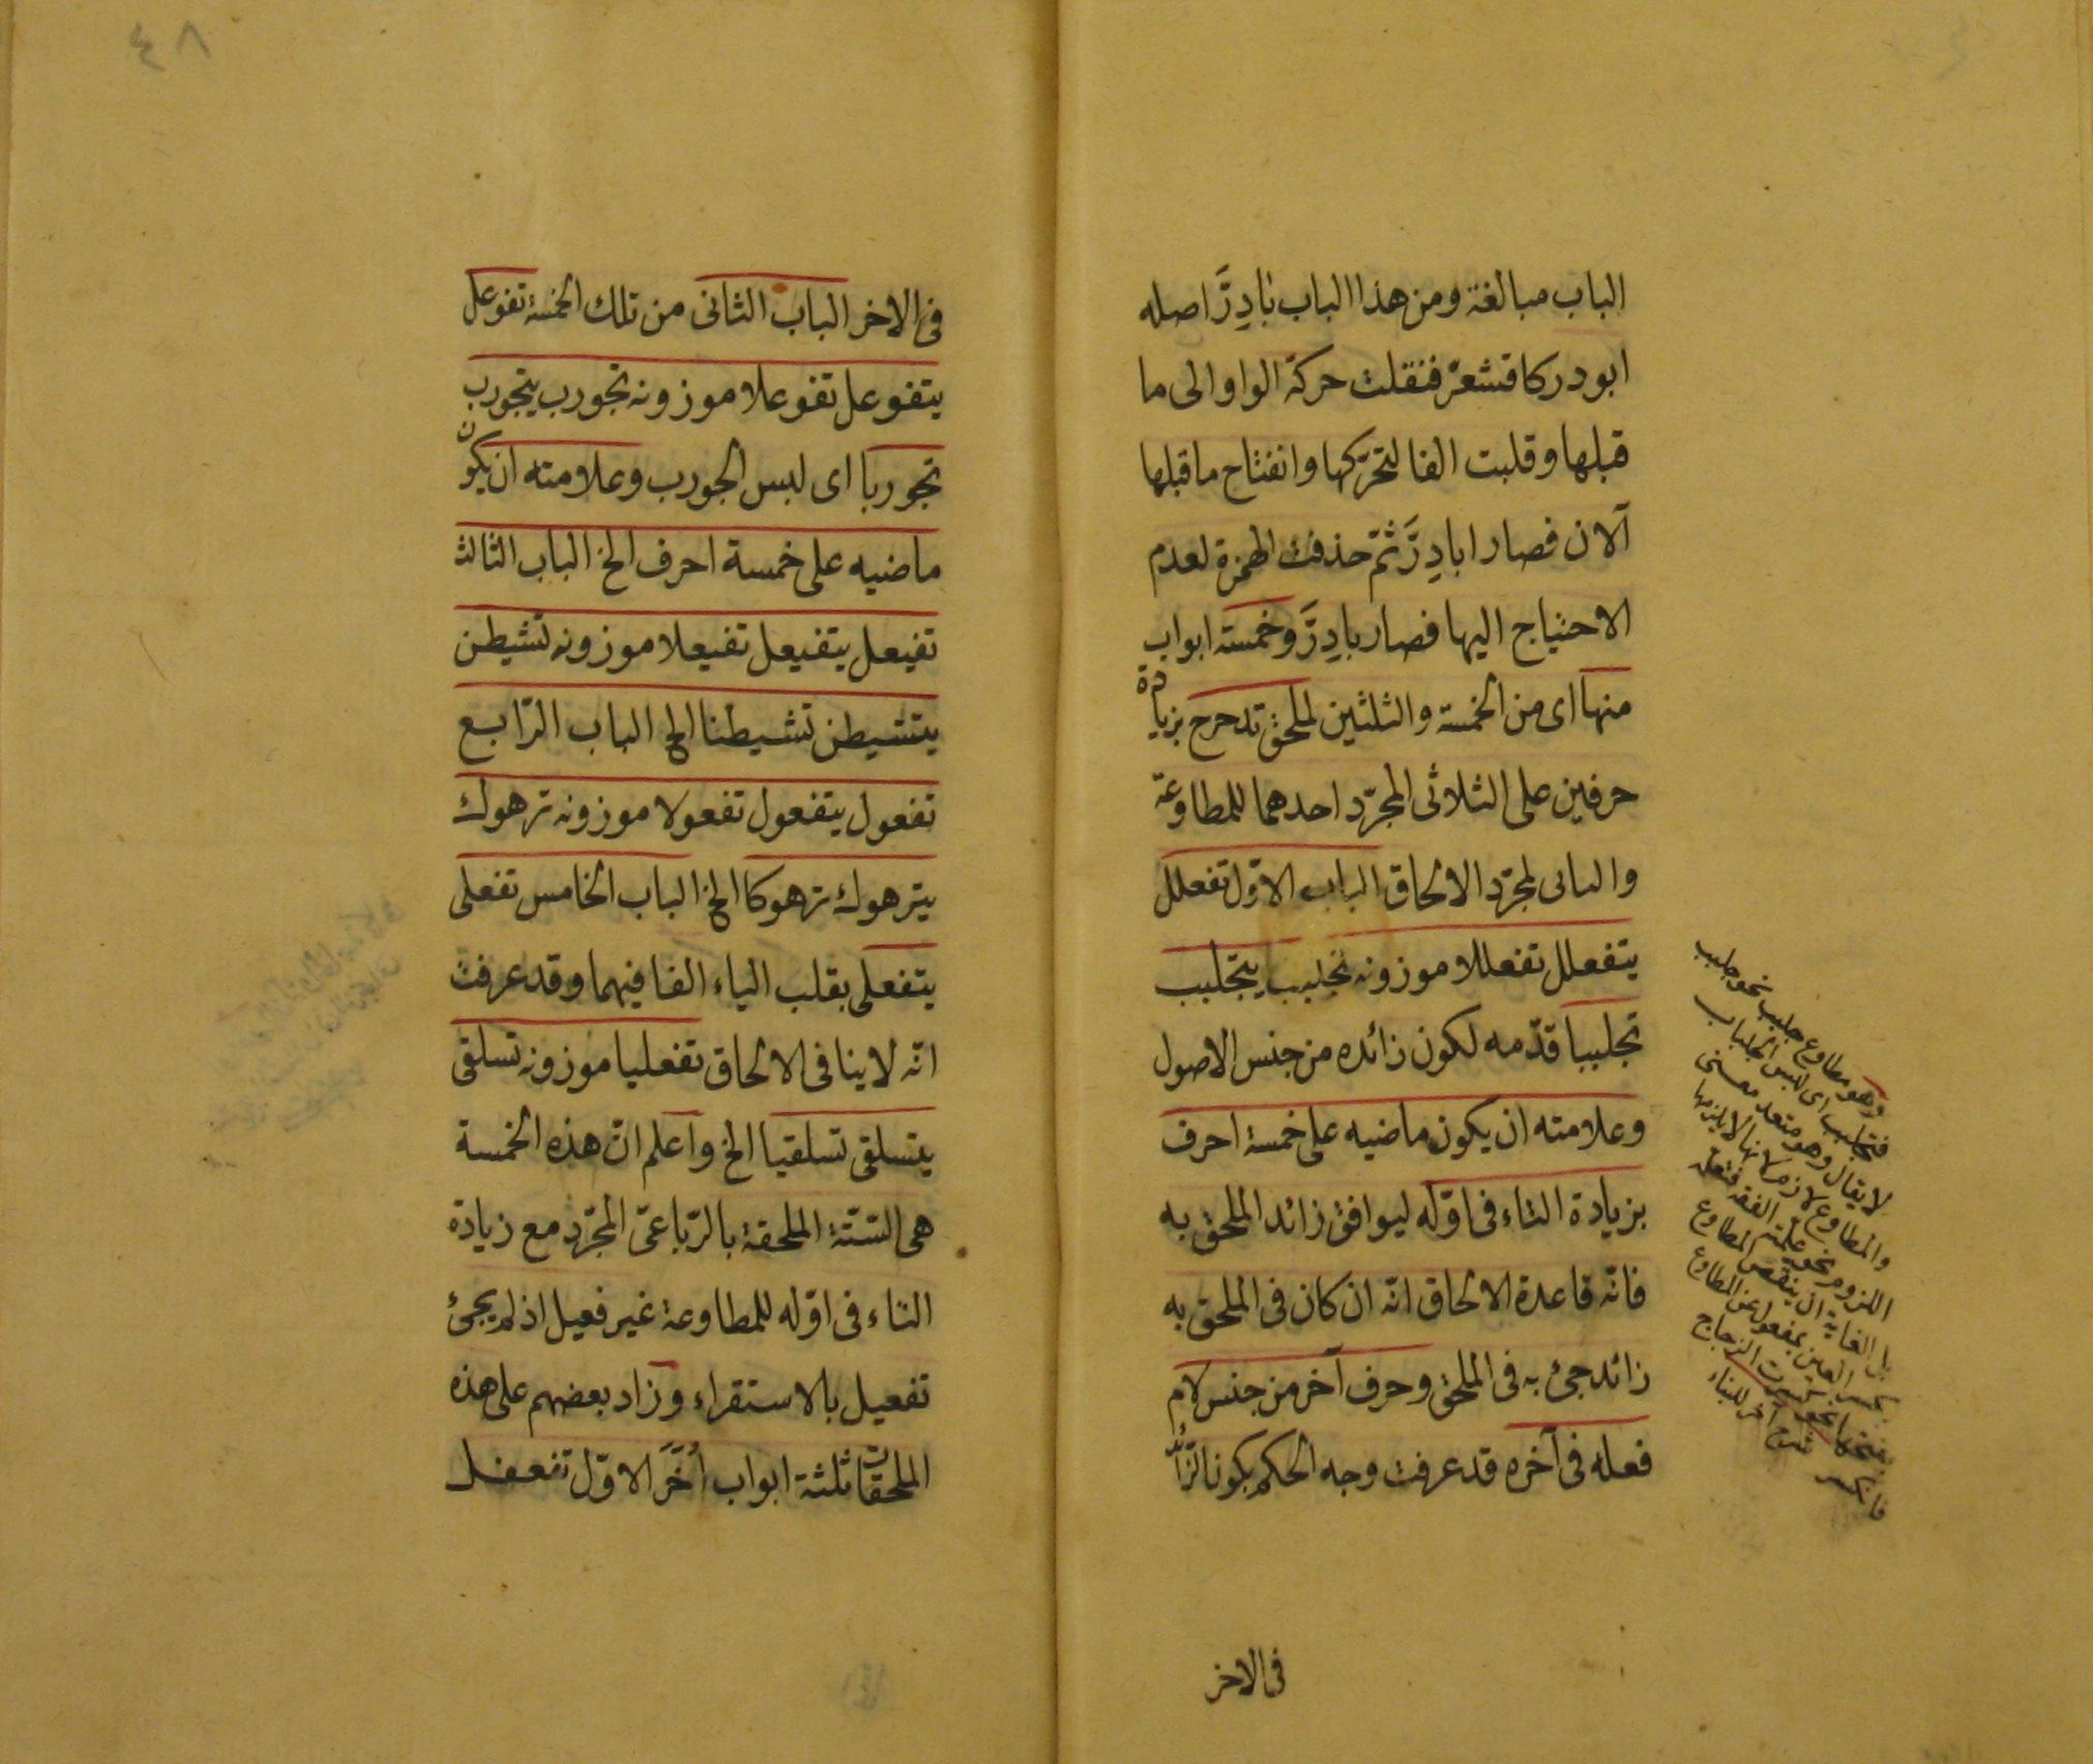 الباب مبالغة ومن هذا الباب بَادِرَّ اصله
ابودر كاقشعرّ فنقلت حركة الواو الى ما
قبلها وقلبت الفا لتحرّكها وانفتاح ماقبلها
آلان فصار ابادِرَّ ثمّ حذفت الهمزة لعدم
الاحتياج اليها فصار بادِرَّ وخمسة ابواب
منها اى من الخمسة والثلثين لملحق تدحرج بزيادة
حرفين على الثلاثى المجرّد احدهما للمطاوعة
والثانى لمجرّد الالحاق الباب الاوّل تفعلل
يتفعلل تفعللا موزونه تجلبب يتجلبب
تجلببا قدّمه لكون زائده من جنس الاصول
وعلامته ان يكون ماضيه على خمسة احرف
بزيادة التاء فى اوّله ليوافق زائد الملحق به
فانّه قاعدة الالحاق انّه ان كان فى الملحق به
زائد جئ به فى الملحق وحرف آخر من جنس لام
فعله فى آخره قد عرفت وجه الحكم بكون الزّائد
فى الاخر
وهو مطاوع جلبب نحو جلبب
فتجلبب اى لبس الجلباب
لا يقال وهو متعد معنى
والمطاوع لازم لانها لا يلزمها
اللزوم نحو علمته الفقه فتعلّمه
بل الغاية ان ينقص المطاوع
بمفعول عن المطاوع
الزجاج
٤٨
فى الاخر الباب الثانى من تلك الخمسة تفوعل
يتفوعل تفوعلا موزونه تجورب يتجورب
تجوربا اى لبس الجورب وعلامته ان يكون
ماضيه على خمسة احرف الخ الباب الثالث
تفيعل يتفيعل تفيعلا موزونه تشيطن
يتشيطن تشيطنا الخ الباب الرّابع
تفعول يتفعول تفعولا موزونه ترهوك
يترهوك ترهوكا الخ الباب الخامس تفعلى
يتفعلى بقلب الياء الفا فيهما وقد عرفت
انّه لا ينافى الالحاق تفعليا موزونه تسلقى
يتسلقى تسلقيا الخ واعلم انّ هذه الخمسة
هى السّتّة الملحقة بالرّباعىّ المجرّد مع زيادة
التاء فى اوّله للمطاوعة غير فعيل اذ لم يجئ
تفعيل بالاستقراء وزاد بعضهم على هذه
الملحقات ثلثة ابواب أُخَرَ الاوّل تمفعل